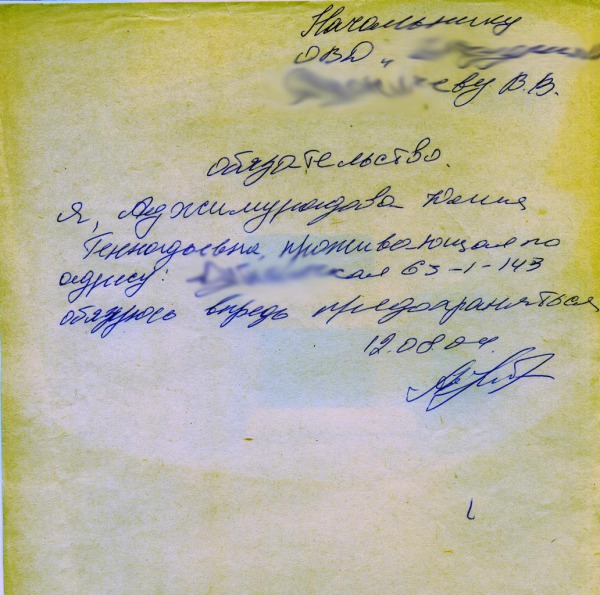 Начальнику
ОВД "
еву В.В.
обязательство.
Я, Аджимурадова
Геннадьевна, проживающая по
адресу: кая 63-1-143
обязуюсь впредь предохраняться
12.08.04.